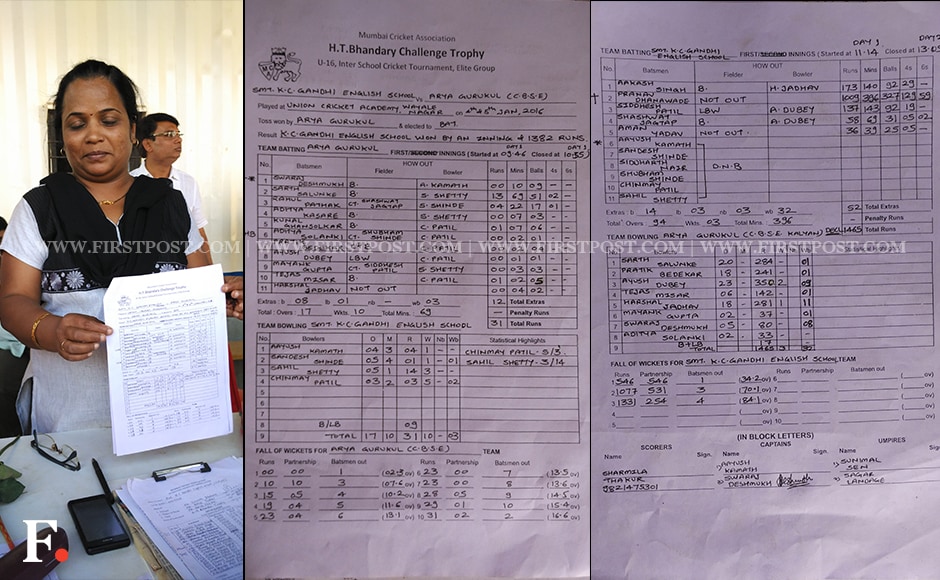 Mumbai Cricket Association
H.T.Bhandary Challenge Trophy
U-16, Inter School Cricket Tournament, Elite Group
SMT. K.C. GANDHI ENGLISH SCHOOL v/s ARYA GURUKUL (C.B.S.E)
Played at UNION CRICKET ACADEMY, WAYALE NAGAR on 4th & 5th JAN, 2016
Toss won by ARYA GURUKUL & elected to BAT.
Result K.C. GANDHI ENGLISH SCHOOL WON BY AN INNING & 1382 RUNS.
TEAM BATTING ARYA GURUKUL FIRST/SECOND INNINGS (Started at 09.46 Closed at 10.55)
DAY 1 DAY 1
Batsmen HOW OUT Fielder Bowler Runs Mins Balls 4s 6s
1 SWARAJ DESHMUKH B. A. KAMATH 00 10 09 - -
2 SARTH SALUNKE B. S. SHETTY 13 69 31 02 -
3 RAHUL PATHAK CT. SHASHWAT JAGTAP S. SHINDE 04 22 17 01 -
4 ADITYA KASARE B. S. SHETTY 00 07 03 - -
5 KUNAL GHANSOLKAR B. C. PATIL 01 07 06 - -
ADITYA SOLANKI SHUBHAM SHINDE
AYUSH DUBEY LBW C. PATIL 00 01 01 - -
MAYANK GUPTA CT. SIDDHESH PATIL S. SHETTY 00 03 03 - -
TEJAS MISAR B. C. PATIL 01 02 05 - -
11 HARSHAL JADHAV NOT OUT 00 04 02 - -
Extras : b 08 lb 01 nb - wb 03 12 Total Extras
Total : Overs 17 Wkts. 10 Total Mins. 69 - Penalty Runs
31 Total Runs
TEAM BOWLING SMT. K.C. GANDHI ENGLISH SCHOOL
Bowlers O M R W Nb Wb Statistical Highlights
1 AAYUSH KAMATH 04 3 04 1 - - CHINMAY PATIL - 5/3
2 SANDESH SHINDE 05 4 01 1 - 01 SAHIL SHETTY - 3/14
3 SAHIL SHETTY 05 1 14 3 - -
4 CHINMAY PATIL 03 2 03 5 - 02
5
6
7
8 B/LB 09
9 TOTAL 17 10 31 10 - 03
FALL OF WICKETS FOR ARYA GURUKUL (C.B.S.E) TEAM
Runs Partnership Batsmen out Runs Partnership Batsmen out
1 00 00 1 ov) 6 23 00 7 (13.5 ov)
2 10 10 3 (07.6 ov) 7 23 00 8 (13.6 ov)
3 15 05 4 (10.2 ov) 8 28 05 9 (14.5 ov)
4 19 04 5 (11.6 ov) 9 29 01 10 (15.4 ov)
5 23 04 6 (13.1 ov) 10 31 02 2 (16.6 ov)
DAY 1 DAY 2
TEAM BATTING SMT. K.C. GANDHI ENGLISH SCHOOL FIRST/SECOND INNINGS (Started at 11.14 Closed at
Batsmen HOW OUT Fielder Bowler Runs Mins Balls 4s 6s
1 AAKASH SINGH B. H. JADHAV 173 140 92 29 -
2 PRANAV DHANAWADE NOT OUT 1009 396 327 129 59
3 SIDDHESH PATIL LBW A. DUBEY 137 143 92 19 -
4 SHASHWAT JAGTAP B A. DUBEY 58 69 31 05 02
5 AMAN YADAV NOT OUT. 36 39 25 05 -
6 AAYUSH KAMATH
7 SANDESH SHINDE
8 SIDDHARTH D.N.B
9 SHUBHAM SHINDE
10 CHINMAY PATIL
11 SAHIL SHETTY
Extras : b 14 lb 03 nb 03 wb 32 52 Total Extras
Total : Overs 94 Wkts. 03 Total Mins. 396 - Penalty Runs
1465 Total Runs
TEAM BOWLING ARYA GURUKUL (C.B.S.E KALYAN)
SARTH SALUNKE 20 - 284 - 01
PRATIK BEDEKAR 18 - 241 - 01
AYUSH DUBEY 23 - 350 2 09
TEJAS MISAR 06 - 142 - 01
HARSHAL JADHAV 18 - 281 1 11
MAYANK GUPTA 02 - 37 - 01
SWARAJ DESHMUKH 05 - 80 - 08
ADITYA SOLANKI 02 - 33
B+LB 17
TOTAL 1465 3
FALL OF WICKETS FOR SMT. K.C. GANDHI ENGLISH SCHOOL TEAM
Runs Partnership Batsmen out Runs Partnership Batsmen out
1 546 546 1 (34.2 ov) 6
2 1077 531 3 (70.1 ov) 7
3 1331 254 4 (84.1 ov) 8
4 ov) 9 ov)
5 ov) 10 ov)
(IN BLOCK LETTERS)
SCORERS CAPTAINS UMPIRES
Name Sign. Name Sign. Name Sign.
SHARMILA THAKUR
9821475301
AAYUSH KAMATH
SWARAJ DESHMUKH
SUNIMAL SEN
SAGAR LANDAGE
WWW.FIRSTPOST.COM | WWW.FIRSTPOST.COM | WWW.FIRSTPOST.COM | WWW.FIRSTPOST.COM
F.